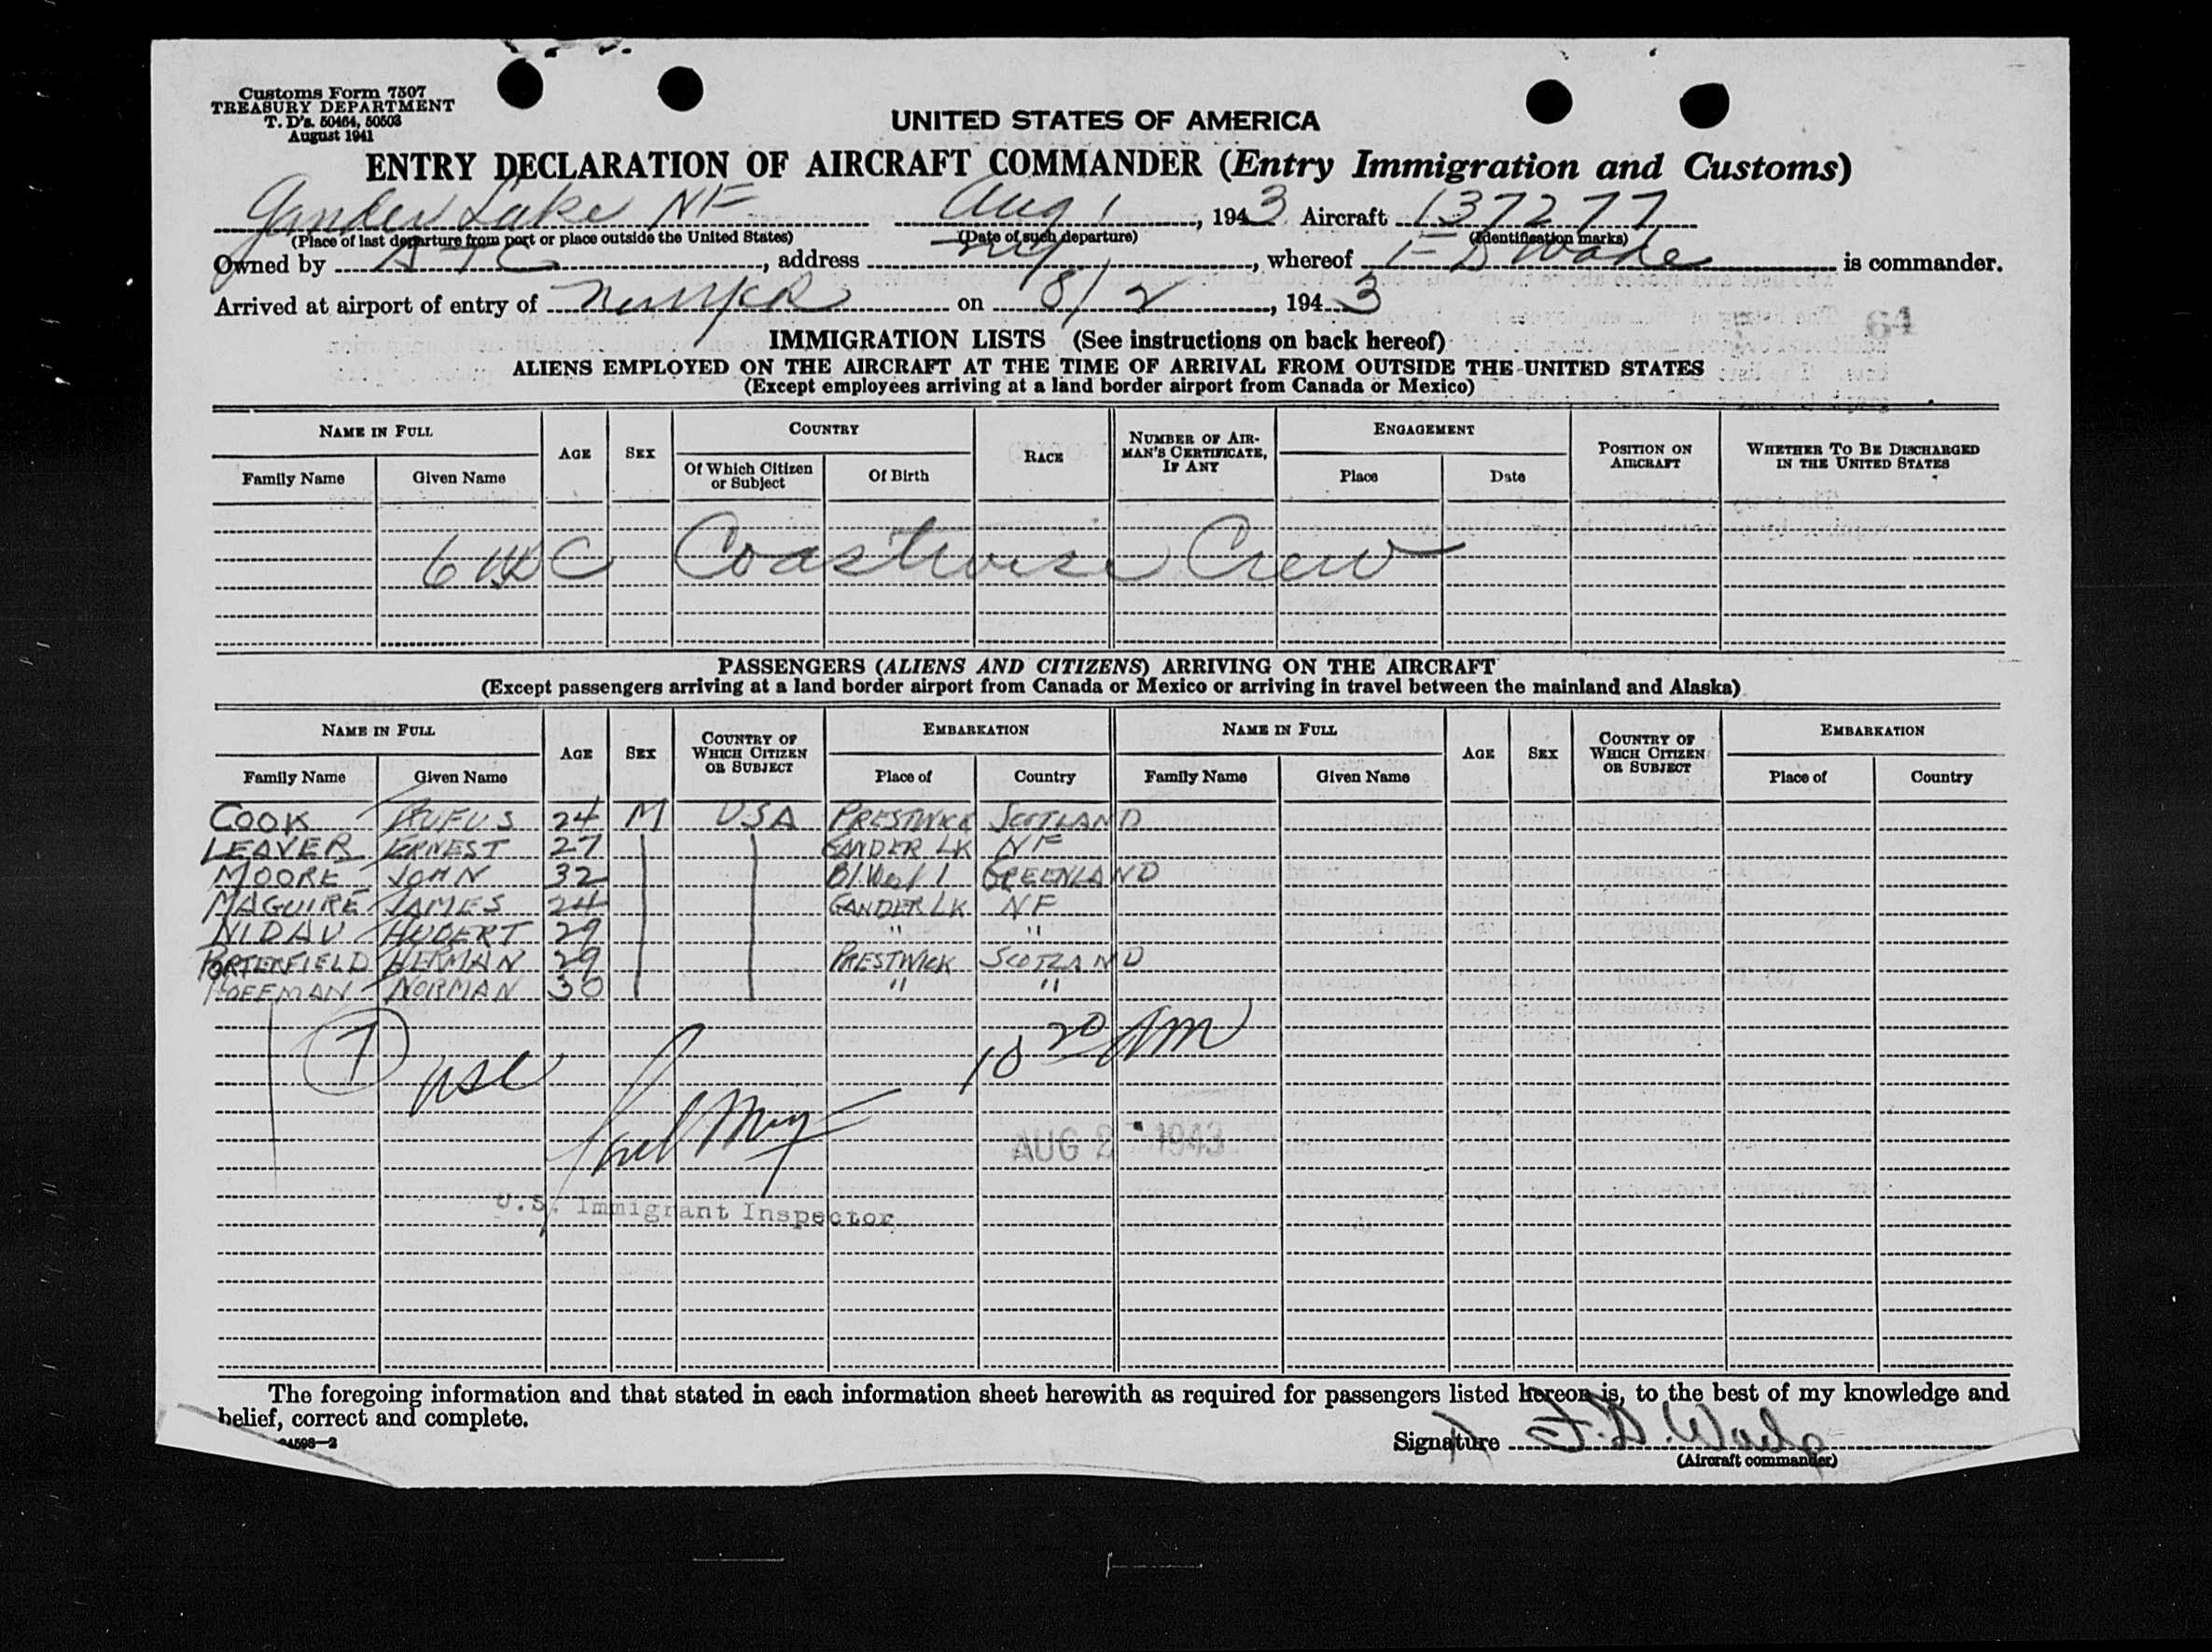 Customs Form 7507
TREASURY DEPARTMENT
T. D's. 50464, 50503
August 1941
UNITED STATES OF AMERICA
ENTRY DECLARATION OF AIRCRAFT COMMANDER (Entry Immigration and Customs)
Gander Lake NF Aug 1, 1943 Aircraft 137277
(Place of last departure from port or place outside the United States) (Date of such departure) (Identification marks)
Owned by ATC, address NY, whereof F D Wade is commander.
Arrived at airport of entry of on 8/2, 1943
64
IMMIGRATION LISTS (See instructions on back hereof)
ALIENS EMPLOYED ON THE AIRCRAFT AT THE TIME OF ARRIVAL FROM OUTSIDE THE UNITED STATES
(Except employees arriving at a land border airport from Canada or Mexico)
NAME IN FULL AGE SEX COUNTRY RACE NUMBER OF AIRMAN'S CERTIFICATE, IF ANY ENGAGEMENT POSITION ON AIRCRAFT WHETHER TO BE DISCHARGED IN THE UNITED STATES
Family Name Given Name Of Which Citizen or Subject Of Birth Place Date
6 Coastwise Crew
PASSENGERS (ALIENS AND CITIZENS) ARRIVING ON THE AIRCRAFT
(Except passengers arriving at a land border airport from Canada or Mexico or arriving in travel between the mainland and Alaska)
NAME IN FULL AGE SEX COUNTRY OF WHICH CITIZEN OR SUBJECT EMBARKATION NAME IN FULL AGE SEX COUNTRY OF WHICH CITIZEN OR SUBJECT EMBARKATION
Family Name Given Name Place of Country Family Name Given Name Place of Country
COOK RUFUS 24 M USA PRESTWICK SCOTLAND
LEAVER ERNEST 27 GANDER LK NF
MOORE JOHN 32 1 GREENLAND
MAGUIRE JAMES 24 GANDER LK NF
NIDAU HUBERT 29 " "
PORTERFIELD HERMAN 29 PRESTWICK SCOTLAND
HOFFMAN NORMAN 30 " "
7 USC 10 20 AM
AUG 2 1943
U.S. Immigrant Inspector
The foregoing information and that stated in each information sheet herewith as required for passengers listed hereon is, to the best of my knowledge and
belief, correct and complete.
Signature
(Aircraft commander)